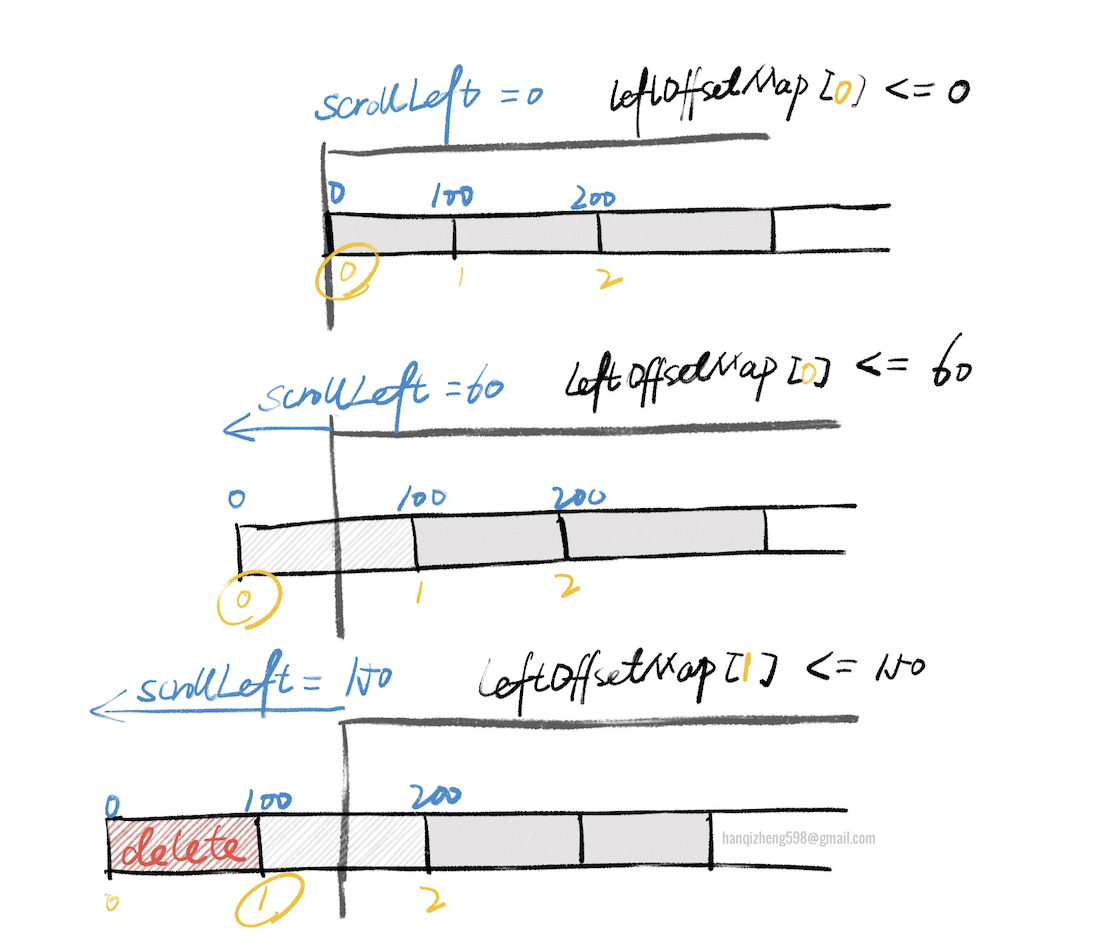 scrollLeft = 0 leftOffsetMap [0] <= 0
0 100 200
0 1 2
scrollLeft = 60 leftOffsetMap [0] <= 60
0 100 200
0 1 2
scrollLeft = 150 leftOffsetMap [1] <= 150
0 100 200
delete
hanqizheng598@gmail.com
0 1 2